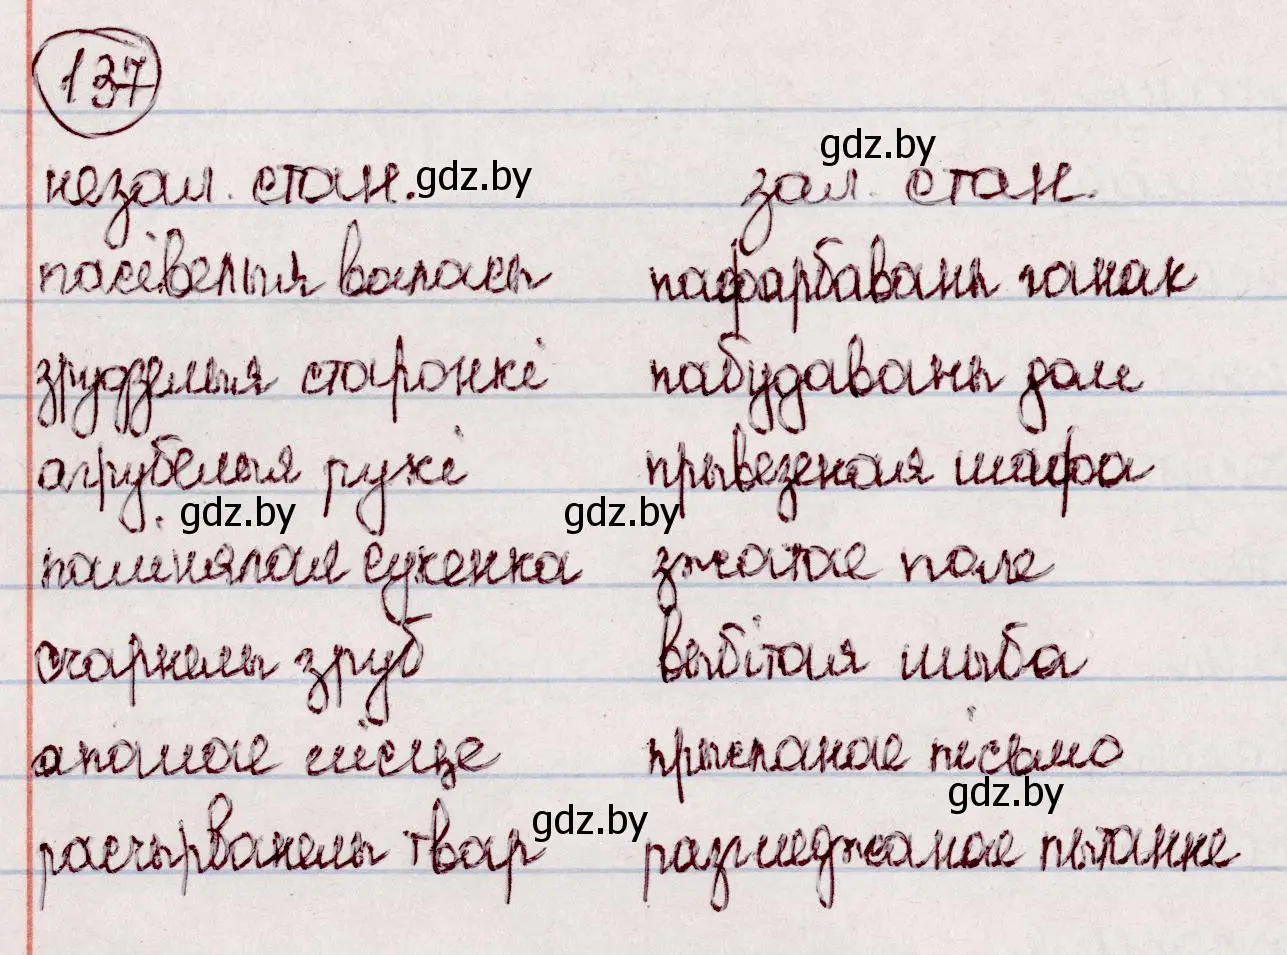 137
gdz.by
незал. стан. gdz.by зал. стан.
пасівелыя валасы пафарбаваны ганак
зрудзелыя старонкі пабудаваны дом
агрубелыя рукі прывезеная шафа
gdz.by gdz.by
палінялая сукенка зжатае поле
счарнелы зруб выбітая шыба
апалае лісце прысланае пісьмо
gdz.by
расчырванелы твар gdz.by разгледжанае пытанне